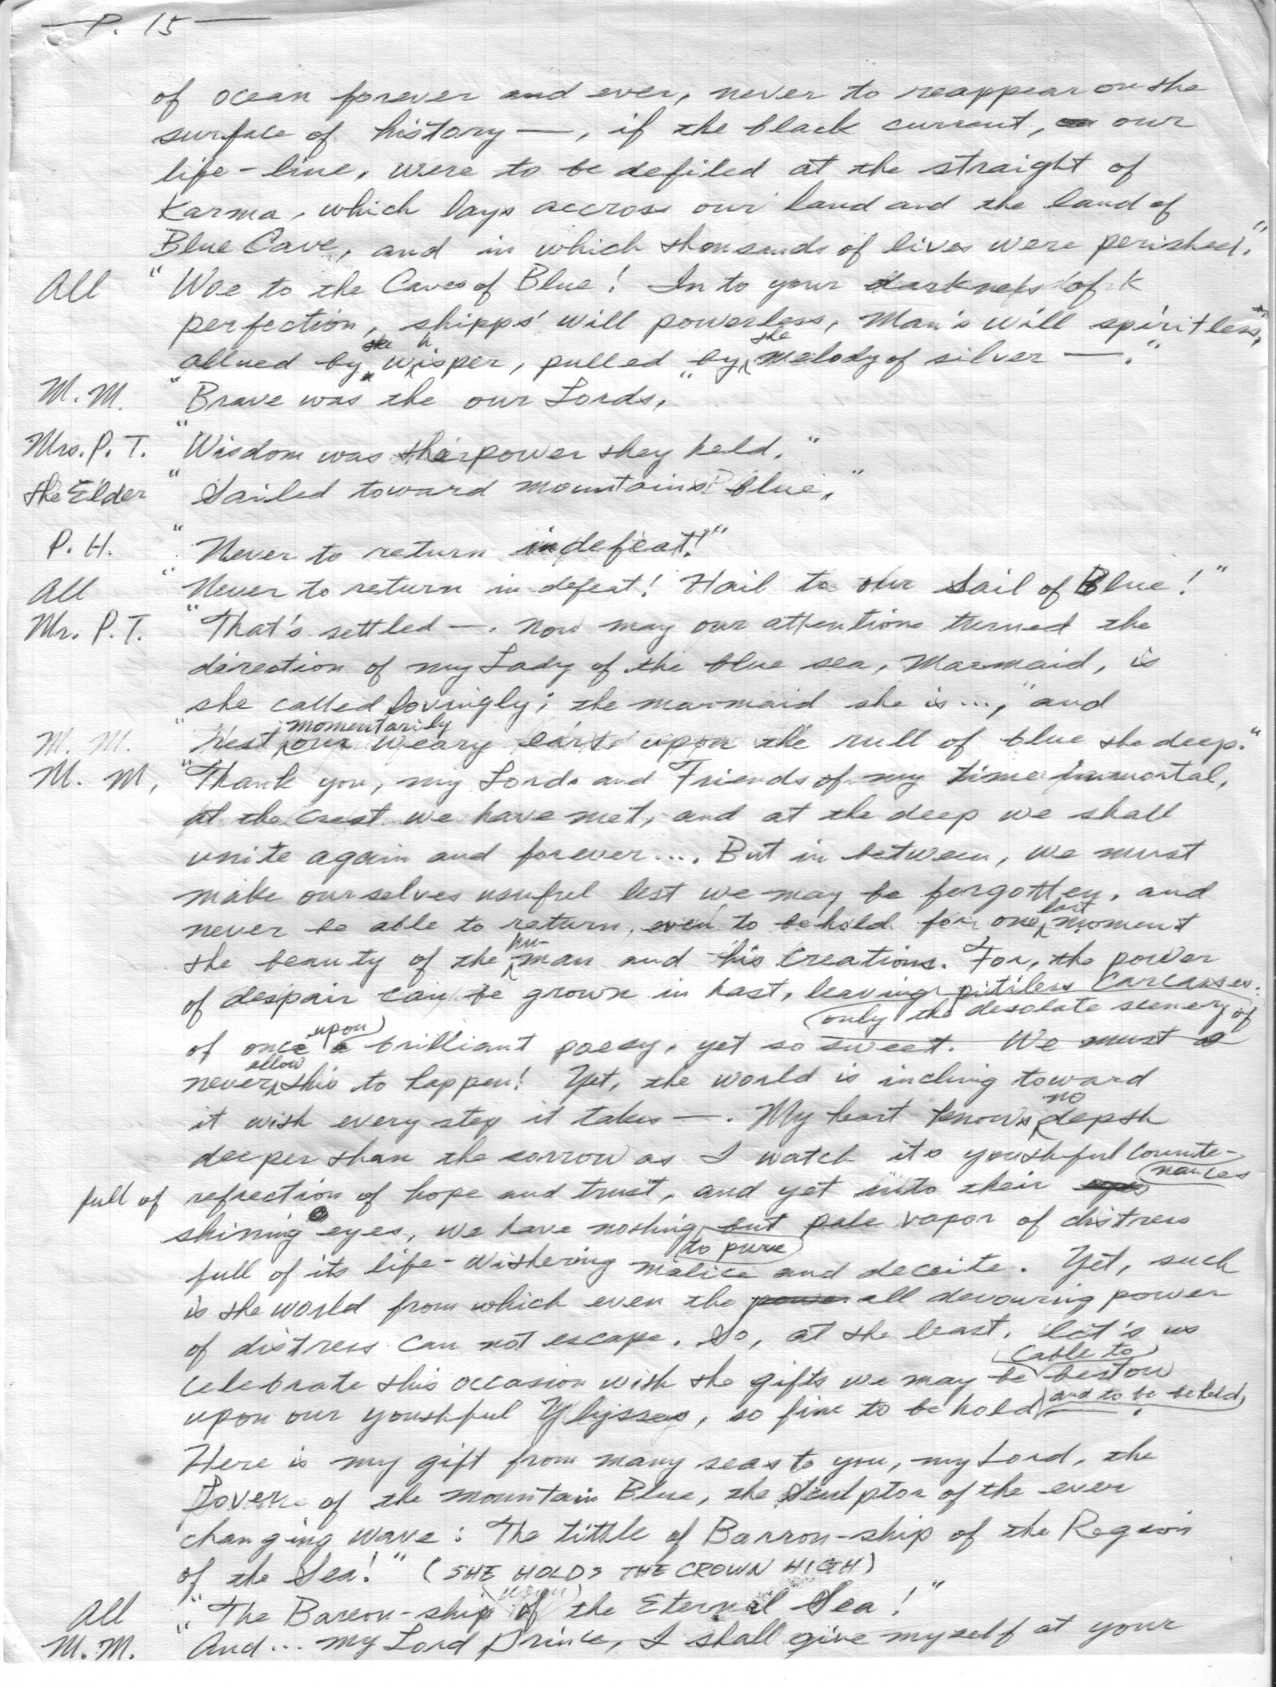 P. 15
of ocean forever and ever, never to reappear on the
surface of history —, if the black current, our
life-line, were to be defiled at the straight of
Karma, which lays accross our land and the land of
Blue Cave, and in which thousands of lives were perished."
All "Woe to the Caves of Blue! In to your darkness of
perfection, shipps' will powerless, Man's will spiritless,
allued by whisper, pulled by the melody of silver —."
M. M. "Brave was the our Lords,"
Mrs. P. T. "Wisdom was their power they held."
the Elder "Sailed toward mountains Blue,"
P. H. "Never to return in defeat!"
All "Never to return in defeat! Hail to our Sail of Blue!"
Mr. P. T. "That's settled —. Now may our attentione turned the
direction of my Lady of the blue sea, Marmaid, is
she called lovingly; the marmaid she is...," and
M. M. "rest momentarily our weary ears upon the rull of blue the deep."
M. M, "Thank you, my Lords and Friends of my time immortal,
at the Crest we have met, and at the deep we shall
unite again and forever.... But in between, we must
make ourselves usuful lest we may be forgotten, and
never be able to return, even to behold for one last moment
the beauty of the hu-man and his Creations. For, the power
of despair can be grown in hast, leaving pitiless Carcasses
only the desolate scenery of
of once upon a brilliant poesy, yet so sweet. We must
never allow this to happen! Yet, the world is incling toward
it wish every step it takes —. My heart knows no depth
deeper than the sorrow as I watch its youthful counte-
nances
full of refrection of hope and trust, and yet into their
shining eyes, we have nothing but pale vapor of distress
full of its life-withering to pure malice and deceite. Yet, such
is the world from which even the all devouring power
of distress can not escape. So, at the least, let's us
celebrate this occasion with the gifts we may be able to bestow
upon our youthful Ylysses, so fine to behold and to be beheld.
Here is my gift from many seas to you, my Lord, the
Lover of the mountain Blue, the Sculptor of the ever
changing wave: The tittle of Barron-ship of the Region
of the Sea!" (SHE HOLDS THE CROWN HIGH)
All "The Barron-ship of the Eternal Sea!"
M. M. "And... my Lord Prince, I shall give myself at your